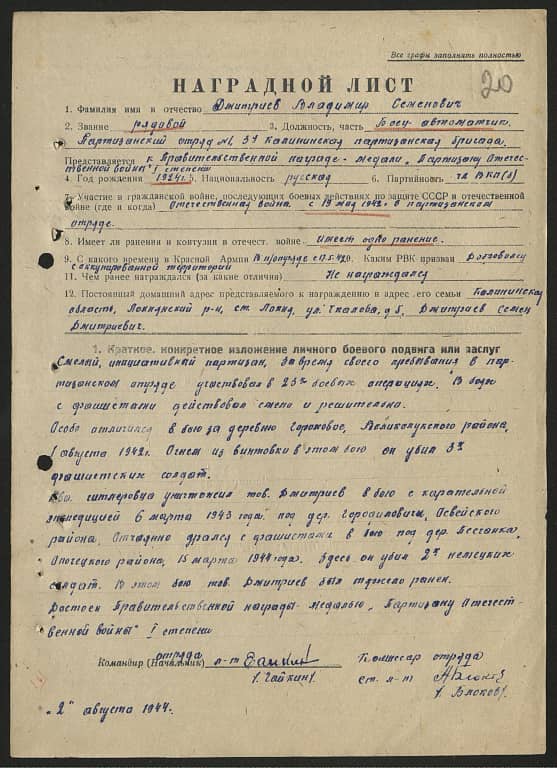 Все графы заполнять полностью
20
НАГРАДНОЙ ЛИСТ
1. Фамилия имя и отчество Дмитриев Владимир Семенович
2. Звание рядовой 3. Должность, часть Боец-автоматчик
Партизанский отряд №1, 3й Калининская партизанская бригада.
Представляется к Правительственной награде - медали „Партизану Отечес-
твенной войны" I степени
4. Год рождения 1924г. 5. Национальность русская 6. Партийность чл ВКП(б)
7. Участие в гражданской войне, последующих боевых действиях по защите СССР и отечественной
войне (где и когда) Отечественная война. с 19 мая 1942г. в партизанском
отряде.
8. Имеет ли ранения и контузии в отечест. войне имеет одно ранение.
9. С какого времени в Красной Армии В п/отряде с 19.5.42г. Каким РВК призван Доброволец
с оккупированной территории
11. Чем ранее награждался (за какие отличия) Не награждался
12. Постоянный домашний адрес представляемого к награждению и адрес его семьи Калининская
область, Локнянский р-н, ст. Локня, ул. Чкалова, д 5, Дмитриев Семен
Дмитриевич.
1. Краткое, конкретное изложение личного боевого подвига или заслуг
Смелый, инициативный партизан, за время своего пребывания в пар-
тизанском отряде участвовал в 23х боевых операциях. В боях
с фашистами действовал смело и решительно.
Особо отличился в бою за деревню Гороховое, Великолукского района,
1 августа 1942г. Огнем из винтовки в этом бою он убил 3х
фашистских солдат.
Два гитлеровца уничтожил тов. Дмитриев в бою с карательной
экспедицией 6 марта 1943 года под дер. Освейского
района. Отчаянно дрался с фашистами в бою под дер. Бессонка,
Опочецкого района, 15 марта 1944 года. Здесь он убил 2х немецких
солдат. В этом бою тов. Дмитриев был тяжело ранен.
Достоин Правительственной награды - медалью „Партизану Отечест-
венной войны" I степени
отряда
Командир (Начальник) л-т
/ Гайкин /
Комиссар отряда
ст. л-т
/ Блохов /
„2" августа 1944.